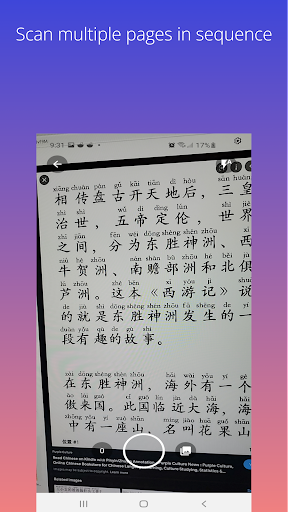 Scan multiple pages in sequence
9:31
17%
xiāng chuán pán gǔ kāi tiān dì hòu sān huáng
相传盘古开天地后，三皇
zhì shì wǔ dì dìng lún shì jiè
治世，五帝定伦，世界
zhī jiān fēn wéi dōng shèng shén zhōu xī
之间，分为东胜神洲、西
niú hè zhōu nán shàn bù zhōu hé běi jù
牛贺洲、南赡部洲和北俱
lú zhōu zhè běn xī yóu jì shuō
芦洲。这本《西游记》说
de jiù shì dōng shèng shén zhōu fā shēng de yī
的就是东胜神洲发生的一
duàn yǒu qù de gù shì
段有趣的故事。
zài dōng shèng shén zhōu hǎi wài yǒu yí gè
在东胜神洲，海外有一个
ào lái guó cǐ guó lín jìn dà hǎi
傲来国。此国临近大海，
zhōng yǒu yí zuò shān míng jiào huā guǒ shān
中有一座山，名叫花果山
位置 #1
0
Purple Culture
Read Chinese on Kindle with Pinyin
Online Chinese Bookstore for Chinese
Related images